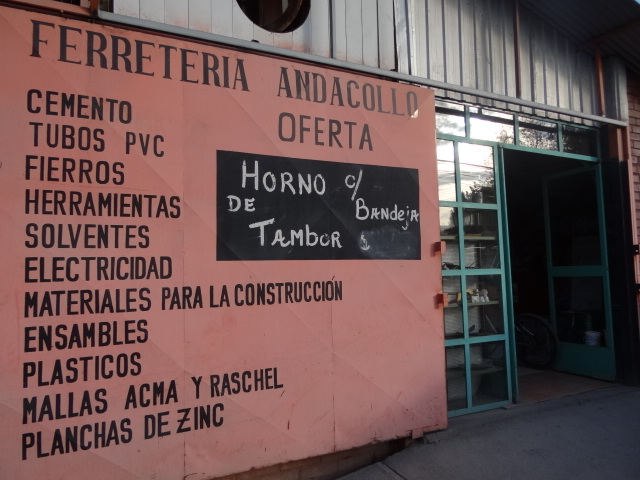 FERRETERIA ANDACOLLO
OFERTA
CEMENTO
TUBOS PVC
FIERROS
HERRAMIENTAS
SOLVENTES
ELECTRICIDAD
MATERIALES PARA LA CONSTRUCCIÓN
ENSAMBLES
PLASTICOS
MALLAS ACMA Y RASCHEL
PLANCHAS DE ZINC
HORNO c/
DE BANDEJA
TAMBOR